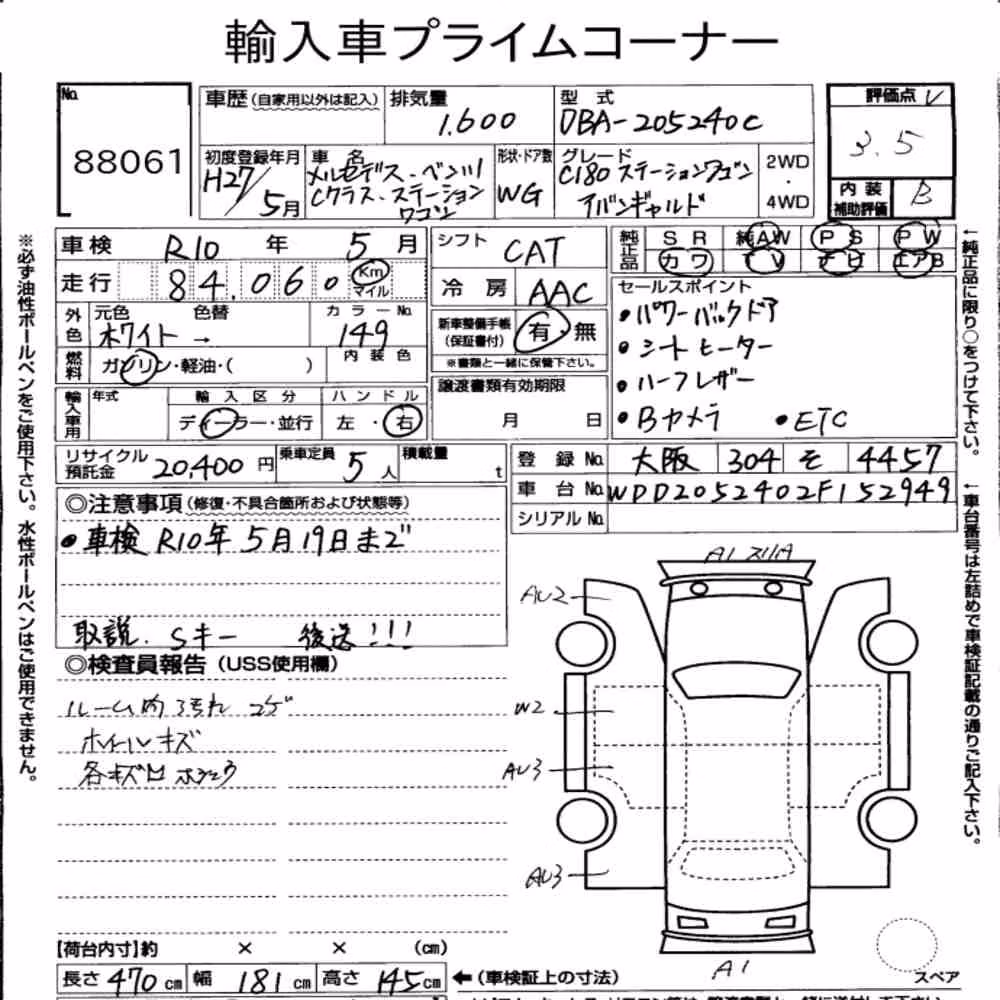 輸入車プライムコーナー
No.
88061
車歴(自家用以外は記入)
排気量
1.600
型式
DBA-205240C
評価点
3.5
内装
補助評価
B
初度登録年月
H27/5月
車名
メルセデス・ベンツ
Cクラス・ステーション
ワゴン
形状・ドア数
WG
グレード
C180 ステーションワゴン
アバンギャルド
2WD
・
4WD
車検 R10年 5月
走行 84.060 Km
マイル
シフト CAT
冷房 AAC
純正品
SR 純AW PS PW
カワ TV ナビ エアB
外色
元色
ホワイト →
色替
カラーNo.
149
燃料
ガソリン・軽油・( )
内装色
新車整備手帳
(保証書付)
有 無
※書類と一緒に保管下さい。
セールスポイント
・パワーバックドア
・シートヒーター
・ハーフレザー
・Bカメラ ・ETC
輸入車用
年式
輸入区分
ディーラー・並行
ハンドル
左・右
譲渡書類有効期限
月 日
リサイクル
預託金
20,400円
乗車定員
5人
積載量
t
登録No. 大阪 304 そ 4457
車台No. WDD2052402F152949
シリアルNo.
◎注意事項(修復・不具合箇所および状態等)
・車検 R10年 5月19日まで
取説. Sキー 後送!!!
◎検査員報告(USS使用欄)
ルーム内汚れ コゲ
ホイールキズ
各キズ凹 ホシュウ
A1
AU2
W2
AU3
AU3
A1
スペア
【荷台内寸】約 × × (cm)
長さ 470 cm 幅 181 cm 高さ 145 cm ←(車検証上の寸法)
※必ず油性ボールペンをご使用下さい。水性ボールペンはご使用できません。
←純正品に限り○をつけて下さい。
←車台番号は左詰めで車検証記載の通りご記入下さい。